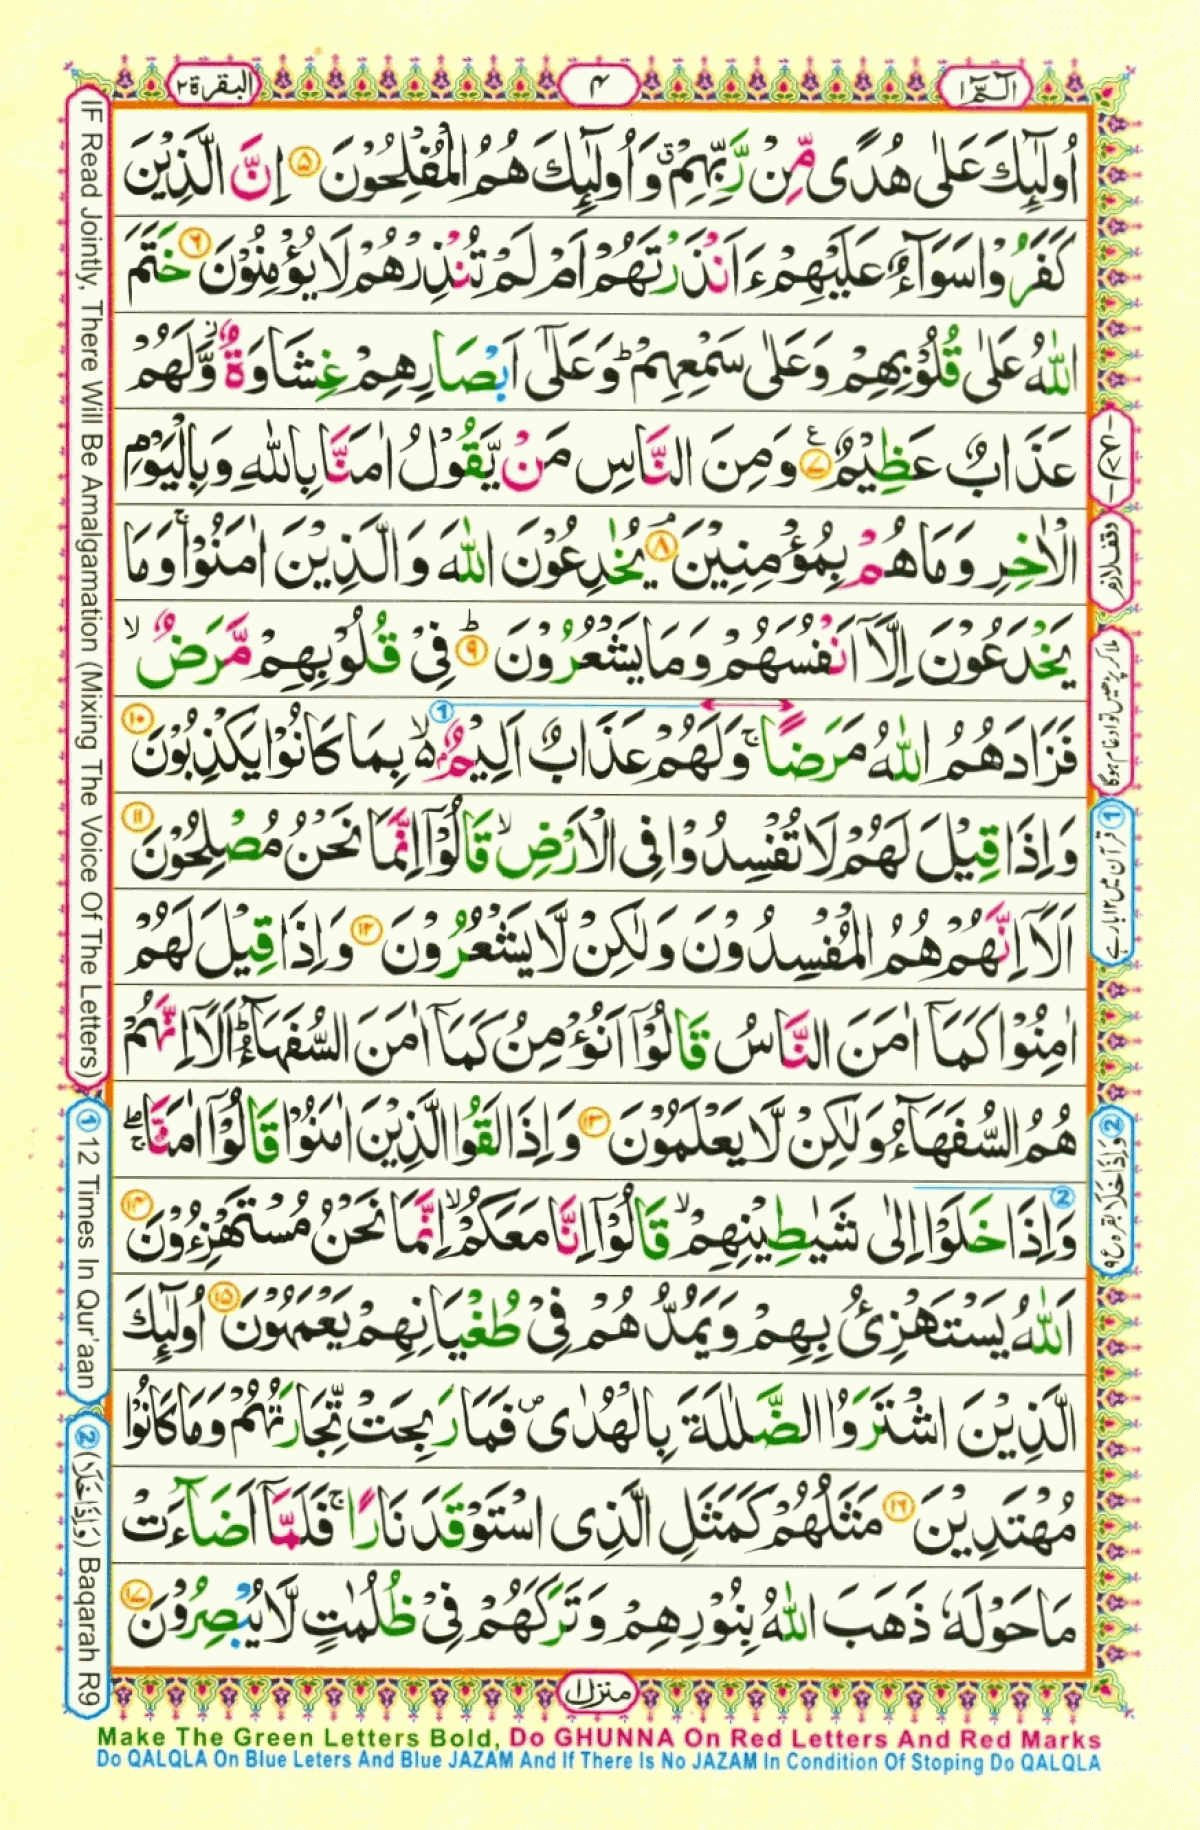 الٓمّٓ ١
٤
البقرة ٢
اُولٰٓئِكَ عَلٰى هُدًى مِّنْ رَّبِّهِمْ ۗ وَاُولٰٓئِكَ هُمُ الْمُفْلِحُوْنَ ۵ اِنَّ الَّذِيْنَ
كَفَرُوْا سَوَآءٌ عَلَيْهِمْ ءَاَنْذَرْتَهُمْ اَمْ لَمْ تُنْذِرْهُمْ لَا يُؤْمِنُوْنَ ۶ خَتَمَ
اللّٰهُ عَلٰى قُلُوْبِهِمْ وَعَلٰى سَمْعِهِمْ ؕ وَعَلٰٓى اَبْصَارِهِمْ غِشَاوَةٌ ۫ وَّلَهُمْ
عَذَابٌ عَظِيْمٌ ۷ وَمِنَ النَّاسِ مَنْ يَّقُوْلُ اٰمَنَّا بِاللّٰهِ وَبِالْيَوْمِ
الْاٰخِرِ وَمَا هُمْ بِمُؤْمِنِيْنَ ۘ ۸ يُخٰدِعُوْنَ اللّٰهَ وَالَّذِيْنَ اٰمَنُوْا ۚ وَمَا
يَخْدَعُوْنَ اِلَّآ اَنْفُسَهُمْ وَمَا يَشْعُرُوْنَ ؕ ۹ فِيْ قُلُوْبِهِمْ مَّرَضٌ ۙ
فَزَادَهُمُ اللّٰهُ مَرَضًا ۚ وَلَهُمْ عَذَابٌ اَلِيْمٌ ۢ ۙ بِمَا كَانُوْا يَكْذِبُوْنَ ۱۰
وَاِذَا قِيْلَ لَهُمْ لَا تُفْسِدُوْا فِى الْاَرْضِ ۙ قَالُوْٓا اِنَّمَا نَحْنُ مُصْلِحُوْنَ ۱۱
اَلَآ اِنَّهُمْ هُمُ الْمُفْسِدُوْنَ وَلٰكِنْ لَّا يَشْعُرُوْنَ ۱۲ وَاِذَا قِيْلَ لَهُمْ
اٰمِنُوْا كَمَآ اٰمَنَ النَّاسُ قَالُوْٓا اَنُؤْمِنُ كَمَآ اٰمَنَ السُّفَهَآءُ ؕ اَلَآ اِنَّهُمْ
هُمُ السُّفَهَآءُ وَلٰكِنْ لَّا يَعْلَمُوْنَ ۱۳ وَاِذَا لَقُوا الَّذِيْنَ اٰمَنُوْا قَالُوْٓا اٰمَنَّا ۖۚ
وَاِذَا خَلَوْا اِلٰى شَيٰطِيْنِهِمْ ۙ قَالُوْٓا اِنَّا مَعَكُمْ ۙ اِنَّمَا نَحْنُ مُسْتَهْزِءُوْنَ ۱۴
اَللّٰهُ يَسْتَهْزِئُ بِهِمْ وَيَمُدُّهُمْ فِيْ طُغْيَانِهِمْ يَعْمَهُوْنَ ۱۵ اُولٰٓئِكَ
الَّذِيْنَ اشْتَرَوُا الضَّلٰلَةَ بِالْهُدٰى ۪ فَمَا رَبِحَتْ تِّجَارَتُهُمْ وَمَا كَانُوْا
مُهْتَدِيْنَ ۱۶ مَثَلُهُمْ كَمَثَلِ الَّذِى اسْتَوْقَدَ نَارًا ۚ فَلَمَّآ اَضَآءَتْ
مَا حَوْلَهٗ ذَهَبَ اللّٰهُ بِنُوْرِهِمْ وَتَرَكَهُمْ فِيْ ظُلُمٰتٍ لَّا يُبْصِرُوْنَ ۱۷
منزل ١
وقف لازم
ملا کر پڑھیں تو ادغام ہوگا
1 قرآن میں ۱۲ بار ہے
2 وَاِذَا خَلَا بقرہ ع ۹
IF Read Jointly, There Will Be Amalgamation (Mixing The Voice Of The Letters)
1 12 Times In Qur'aan
2 (وَاِذَا خَلَا) Baqarah R9
Make The Green Letters Bold, Do GHUNNA On Red Letters And Red Marks
Do QALQLA On Blue Leters And Blue JAZAM And If There Is No JAZAM In Condition Of Stoping Do QALQLA